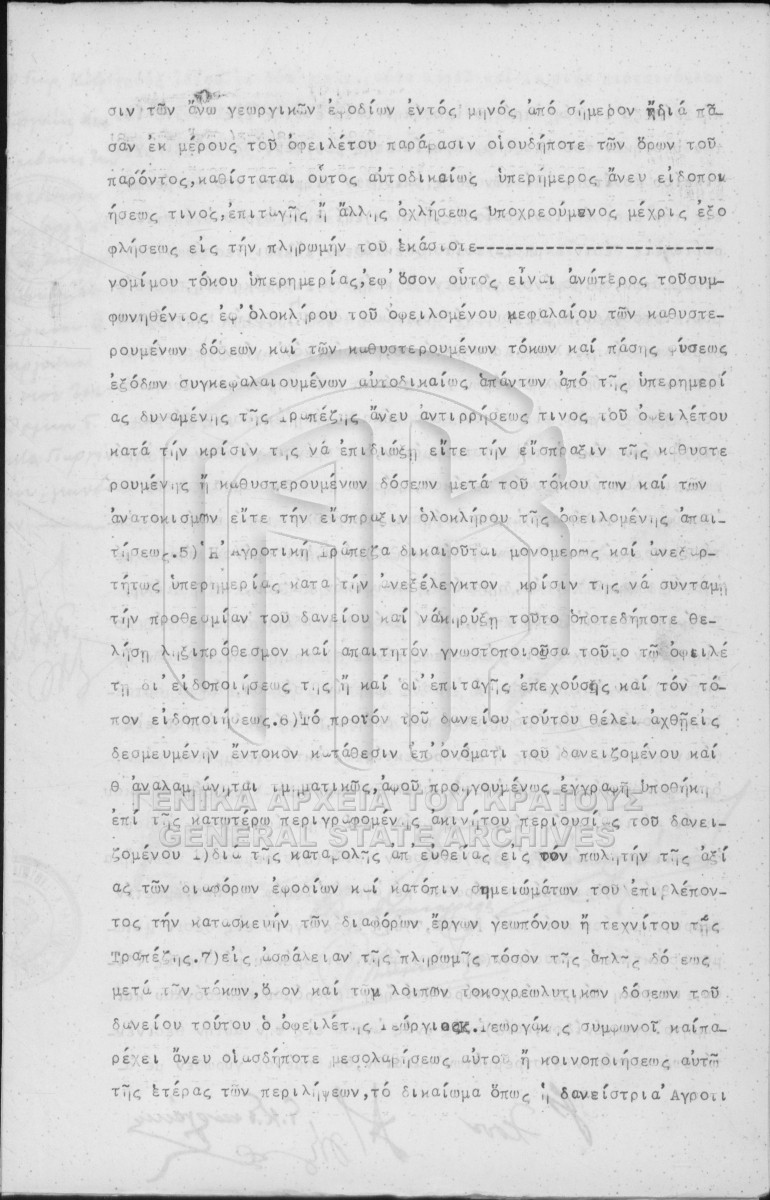 σιν τῶν ἄνω γεωργικῶν ἐφοδίων ἐντός μηνός ἀπό σήμερον ἤδιά πᾶ-
σαν ἐκ μέρους τοῦ ὀφειλέτου παράβασιν οἱουδήποτε τῶν ὅρων τοῦ
παρόντος,καθίσταται οὗτος αὐτοδικαίως ὑπερήμερος ἄνευ εἰδοποι
ήσεως τινος,ἐπιταγῆς ἤ ἄλλης ὀχλήσεως ὑποχρεούμενος μέχρις ἐξο
φλήσεως εἰς τήν πληρωμήν του ἑκάστοτε-------------------------
νομίμου τόκου ὑπερημερίας,ἐφ'ὅσον οὗτος εἶναι ἀνώτερος τοῦσυμ-
φωνηθέντος ἐφ'ὁλοκλήρου τοῦ ὀφειλομένου κεφαλαίου τῶν καθυστε-
ρουμένων δόσεων καί τῶν καθυστερουμένων τόκων καί πάσης φύσεως
ἐξόδων συγκεφαλαιουμένων αὐτοδικαίως ἁπάντων ἀπό τῆς ὑπερημερί
ας δυναμένης τῆς Τραπέζης ἄνευ ἀντιρρήσεως τινος τοῦ ὀφειλέτου
κατά τήν κρίσιν της νά ἐπιδιώξῃ εἴτε τήν εἴσπραξιν τῆς καθυστε
ρουμένης ἤ καθυστερουμένων δόσεων μετά τοῦ τόκου των καί τῶν
ἀνατοκισμῶν εἴτε τήν εἴσπραξιν ὁλοκλήρου τῆς ὀφειλομένης ἀπαι-
τήσεως.5)Ἡ Ἀγροτική Τράπεζα δικαιοῦται μονομερῶς καί ἀνεξαρ-
τήτως ὑπερημερίας κατα τήν ἀνεξέλεγκτον κρίσιν της νά συντάμῃ
τήν προθεσμίαν τοῦ δανείου καί νάκηρύξῃ τοῦτο ὁποτεδήποτε θε-
λήσῃ ληξιπρόθεσμον καί ἀπαιτητόν γνωστοποιοῦσα τοῦτο τῷ ὀφειλέ
τῃ δι'εἰδοποιήσεως της ἤ καί δι'ἐπιταγῆς ἐπεχούσης καί τόν τό-
πον εἰδοποιήσεως.6)Τό προϊόν τοῦ δανείου τούτου θέλει ἀχθῆεἰς
δεσμευμένην ἔντοκον κατάθεσιν ἐπ'ὀνόματι τοῦ δανειζομένου καί
θ ἀναλαμβάνηται τμηματικῶς,ἀφοῦ προηγουμένως ἐγγραφῆ ὑποθήκη
ἐπί τῆς κατωτέρω περιγραφομένης ἀκινήτου περιουσίας τοῦ δανει-
ζομένου 1)διά τῆς καταβολῆς ἀπ εὐθείας εἰς τόν πωλητήν τῆς ἀξί
ας τῶν διαφόρων ἐφοδίων καί κατόπιν σημειώματων τοῦ ἐπιβλέπον-
τος τήν κατασκευήν τῶν διαφόρων ἔργων γεωπόνου ἤ τεχνίτου τῆς
Τραπέζης.7)εἰς ἀσφάλειαν τῆς πληρωμῆς τόσον τῆς ἁπλῆς δόσεως
μετά τῶν τόκων,ὅσον καί τῶν λοιπῶν τοκοχρεωλυτικῶν δόσεων τοῦ
δανείου τούτου ὁ ὀφειλέτης Γεώργιος Κ.Γεωργάκης συμφωνεῖ καίπα-
ρέχει ἄνευ οἱασδήποτε μεσολαβήσεως αὐτοῦ ἤ κοινοποιήσεως αὐτῷ
τῆς ἑτέρας τῶν περιλήψεων,τό δικαίωμα ὅπως ἡ δανείστρια Ἀγροτι
ΓΕΝΙΚΑ ΑΡΧΕΙΑ ΤΟΥ ΚΡΑΤΟΥΣ
GENERAL STATE ARCHIVES